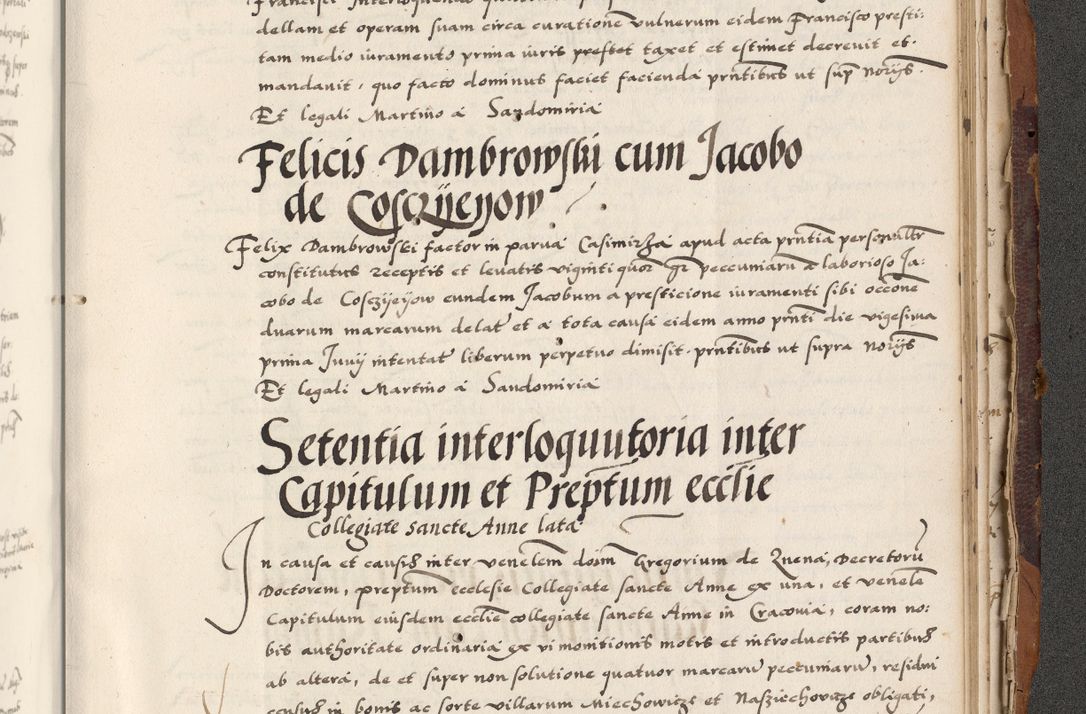 dellam et operam suam circa curatione vulnerum eidem Francisco presti:
tam medio iuramento prima iuris prestet taxet et estimet decrevit et
mandavit, quo facto dominus faciet facienda prntibus ut sup norijs.
Et legali Martino a Sandomiria
Felicis Dambrowski cum Jacobo
de Cosczijeyow
Felix Dambrowski factor in parva Casimirza apud acta prntia personaltr
constitutus receptis et levatis viginti quor gr peccuniaru a laborioso Ja:
cobo de Cosczijeijow eundem Jacobum a presticione iuramenti sibi occone
duarum marcarum delat et a tota causa eidem anno prnti die vigesima
prima Junij intentat liberum perpetuo dimisit. prntibus ut supra norijs
Et legali Martino a Sandomiria
Setentia interloquutoria inter
Capitulum et Preptum ecclie
Collegiate sancte Anne lata
In causa et causis inter venelem doim Gregorium de Znena, Decretoru
Doctorem, preptum ecclesie Collegiate sancte Anne ex una, et venele
Capitulum eiusdem ecclie collegiate sancte Anne in Cracovia, coram no:
bis authoritate ordinaria ex vi monitionis motis et introductis partibus
ab altera, de et super non solutione quatuor marcaru pecuniaru, residui
census in bonis ac sorte villarum Miechowicze et Nasziechovicze obligati,